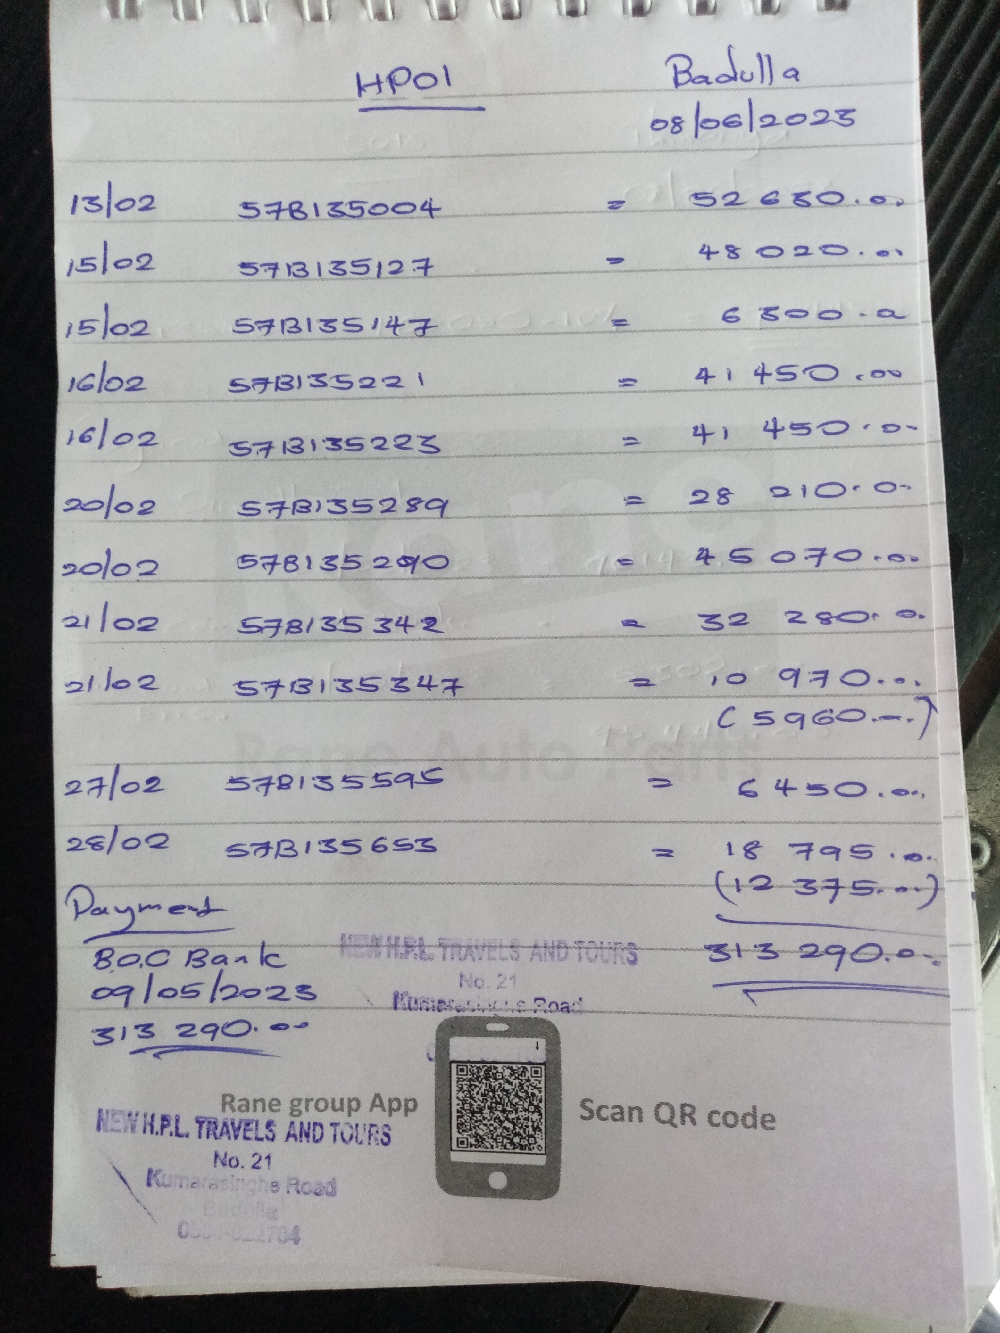 HP01 Badulla
08/06/2023
13/02 57B135004 = 52 630.00
15/02 57B135127 = 48 020.00
15/02 57B135147 = 6 300.00
16/02 57B135221 = 41 450.00
16/02 57B135223 = 41 450.00
20/02 57B135289 = 28 210.00
20/02 57B135290 = 45 070.00
21/02 57B135342 = 32 280.00
21/02 57B135347 = 10 970.00
(5960.00)
27/02 57B135595 = 6 450.00
28/02 57B135653 = 18 795.00
(12 375.00)
Payment
313 290.00
B.O.C Bank
09/05/2023
313 290.00
NEW H.P.L. TRAVELS AND TOURS
No. 21
Kumarasinghe Road
Rane Auto Parts
Rane group App
Scan QR code
NEW H.P.L. TRAVELS AND TOURS
No. 21
Kumarasinghe Road
Badulla